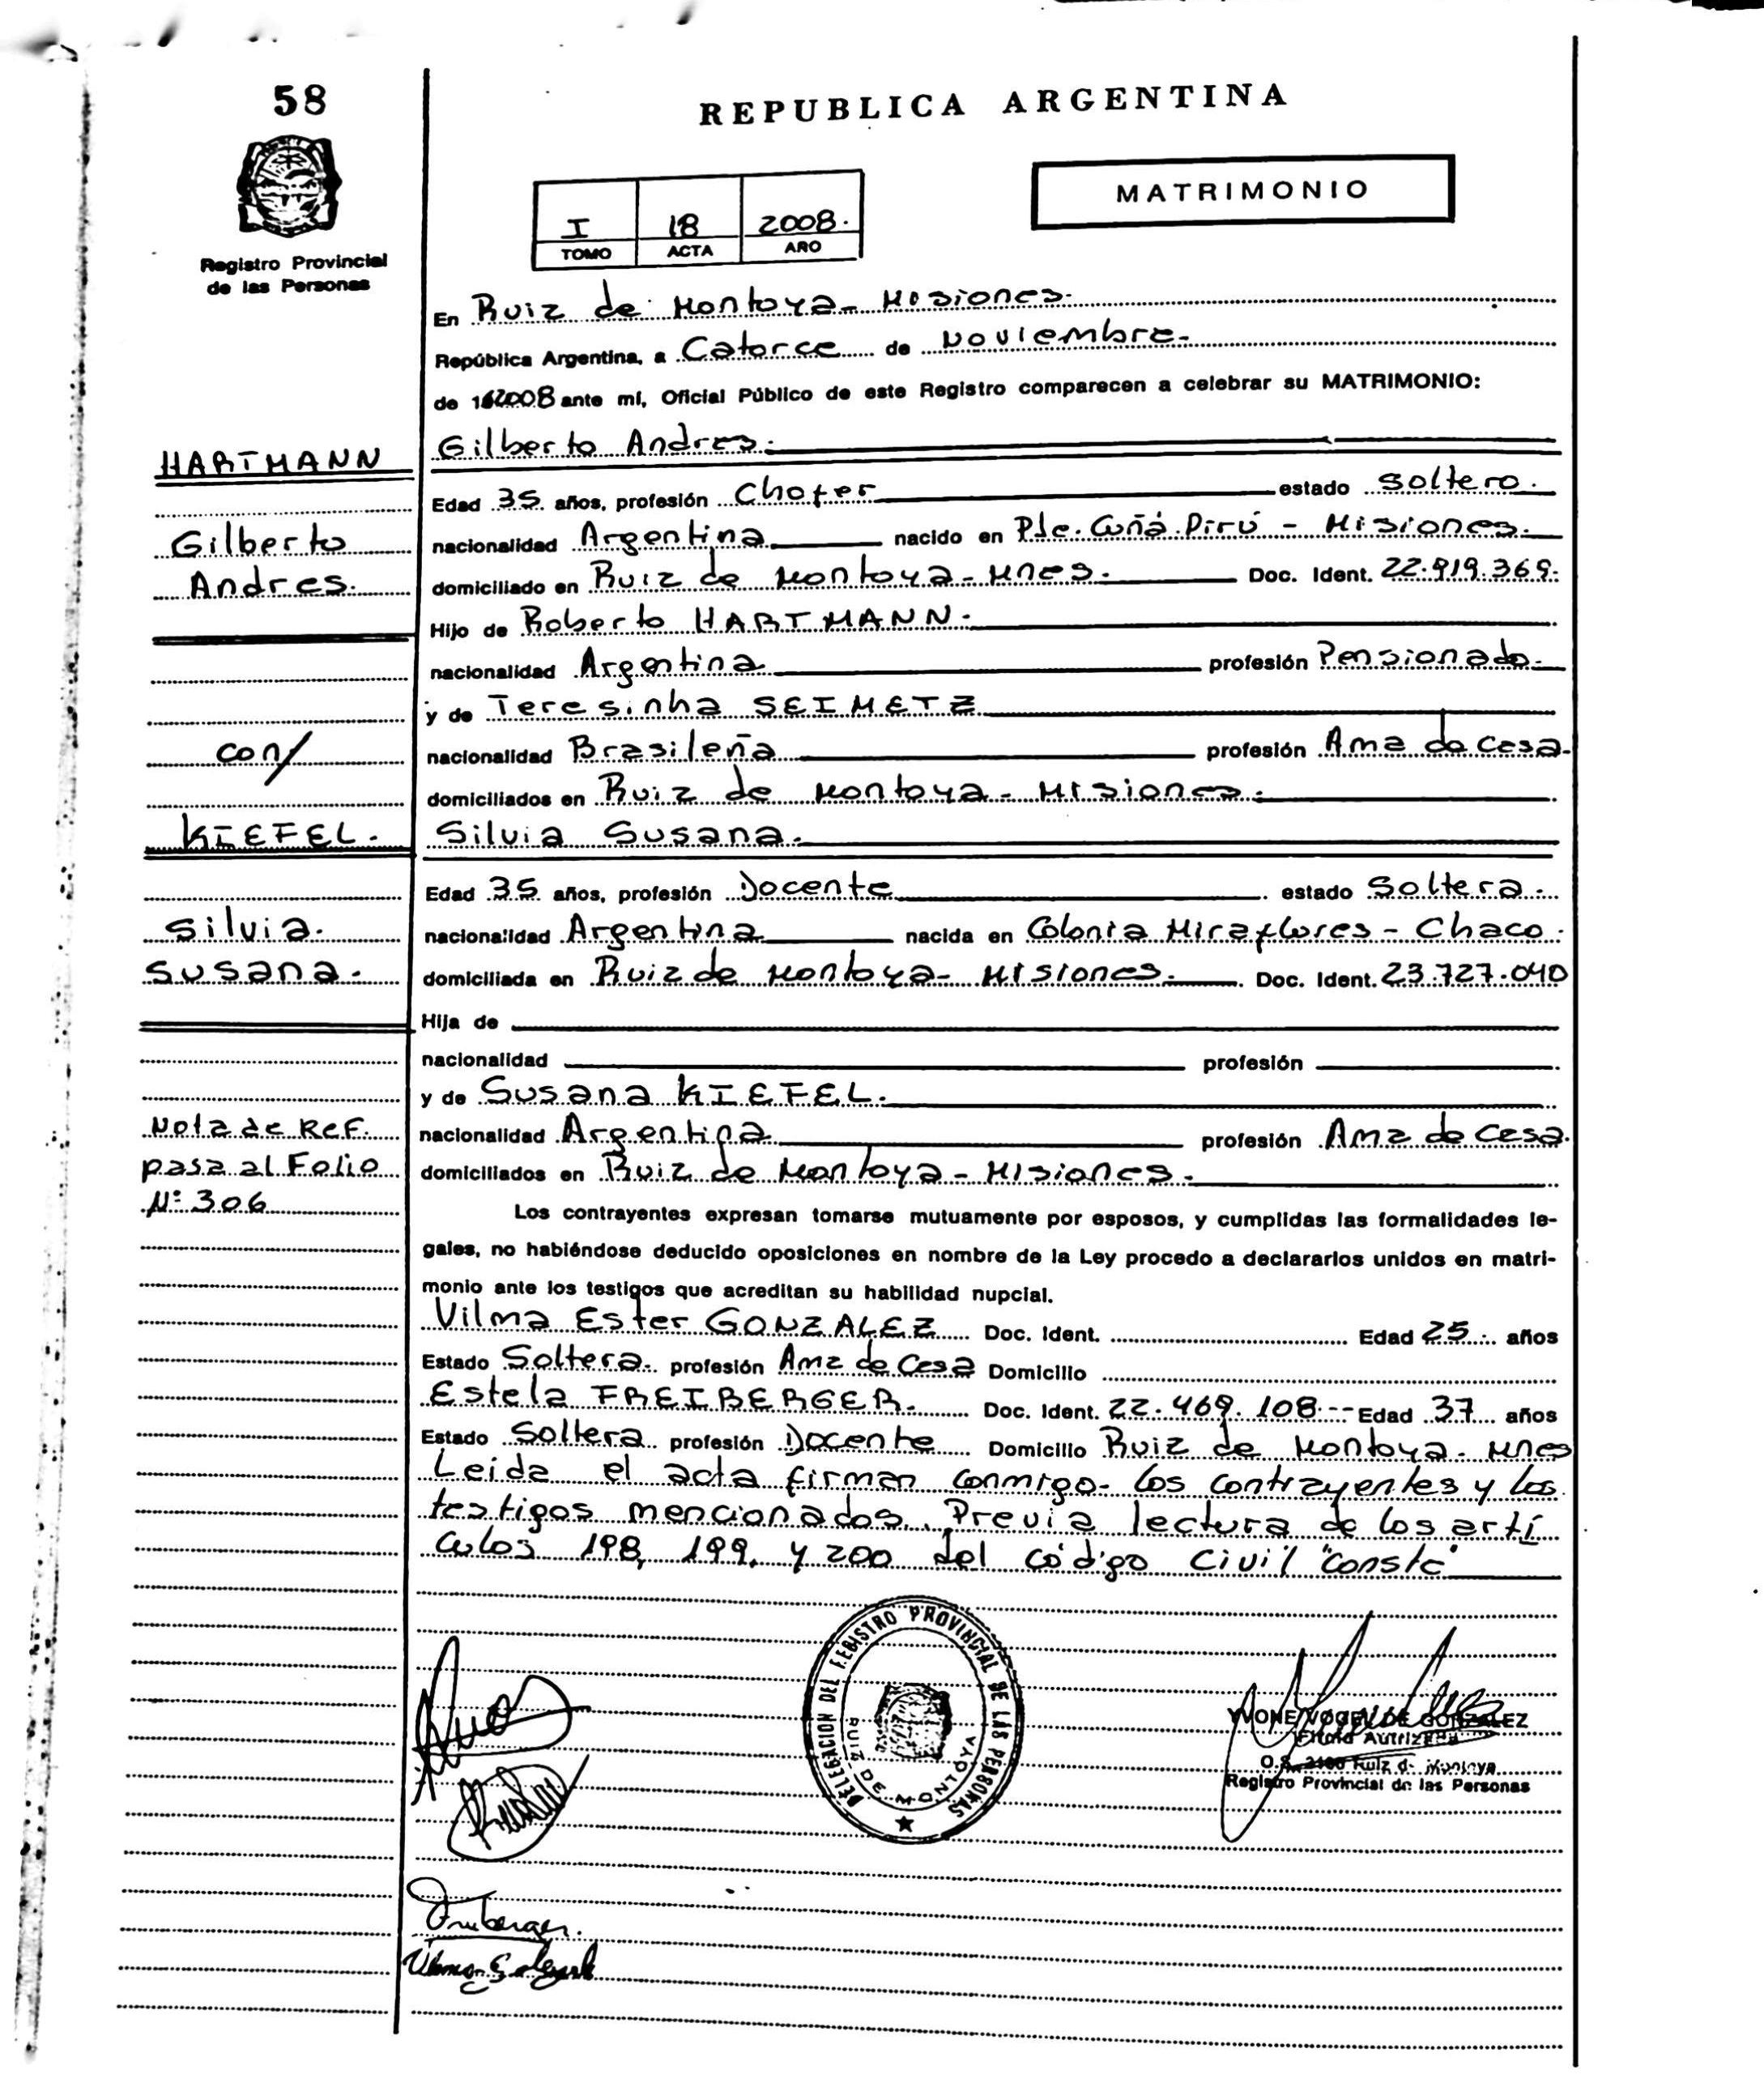 58
REPUBLICA ARGENTINA
MATRIMONIO
I 18 2008.
TOMO ACTA AÑO
Registro Provincial
de las Personas
En Ruiz de Montoya - Misiones.
República Argentina, a Catorce de Noviembre.
de 2008 ante mí, Oficial Público de este Registro comparecen a celebrar su MATRIMONIO:
HARTMANN Gilberto Andres.
Edad 35 años, profesión Chofer estado Soltero.
Gilberto nacionalidad Argentina nacido en Ple. Cuñá Pirú - Misiones.
Andres. domiciliado en Ruiz de Montoya - Mnes. Doc. Ident. 22.919.369.
Hijo de Roberto HARTMANN.
nacionalidad Argentina profesión Pensionado.
y de Teresinha SEIMETZ
con/ nacionalidad Brasileña profesión Ama de Casa.
domiciliados en Ruiz de Montoya - Misiones.
KIEFEL. Silvia Susana.
Edad 35 años, profesión Docente estado Soltera.
Silvia. nacionalidad Argentina nacida en Colonia Miraflores - Chaco.
Susana. domiciliada en Ruiz de Montoya - Misiones. Doc. Ident. 23.727.040
Hija de
nacionalidad profesión
y de Susana KIEFEL.
Nota de Ref. nacionalidad Argentina profesión Ama de Casa.
pasa al Folio domiciliados en Ruiz de Montoya - Misiones.
Nº 306
Los contrayentes expresan tomarse mutuamente por esposos, y cumplidas las formalidades le-
gales, no habiéndose deducido oposiciones en nombre de la Ley procedo a declararlos unidos en matri-
monio ante los testigos que acreditan su habilidad nupcial.
Vilma Ester GONZALEZ Doc. Ident. Edad 25 años
Estado Soltera. profesión Ama de Casa Domicilio
Estela FREIBERGER. Doc. Ident. 22.469.108 -- Edad 37 años
Estado Soltera profesión Docente Domicilio Ruiz de Montoya - Mnes
Leida el acta firman conmigo los contrayentes y los
testigos mencionados. Previa lectura de los artí
culos 198, 199, y 200 del código civil "conste"
DELEGACION DEL REGISTRO PROVINCIAL DE LAS PERSONAS
RUIZ DE MONTOYA
YVONE VOGEL DE GONZALEZ
O.S. 2100 Ruiz de Montoya
Registro Provincial de las Personas
Freiberger.